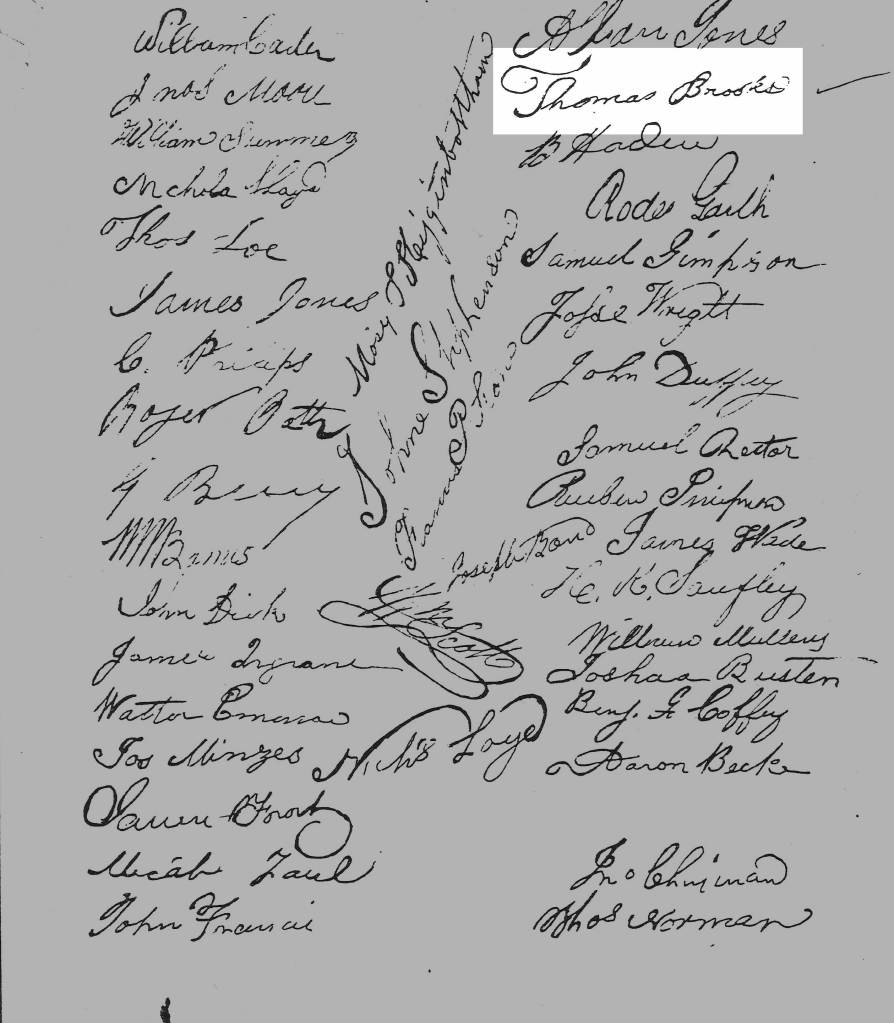 William Carter
Enos Moore
William Summers
Nichola Lloyd
Thos Loe
James Jones
C. Phipps
Roger
G Berry
John Dick
James Ingrane
Walter
Jos Minzes
Frost
Micah Taul
John Francis
Mosey T Higginbottham
Johne Stephenson
Francis P Stone
Joseph Bond
Wm Scott
Nichs Loyed
Allan Jones
Thomas Brooks
B Haden
Rodes Garth
Samuel Simpson
Jesse Wright
John Duffey
Samuel Rector
Reuben
James Wade
H. K. Saufley
William Mullens
Joshaa Busten
Benj. F Coffey
Aaron Beck
Jno Chrisman
Thos Norman